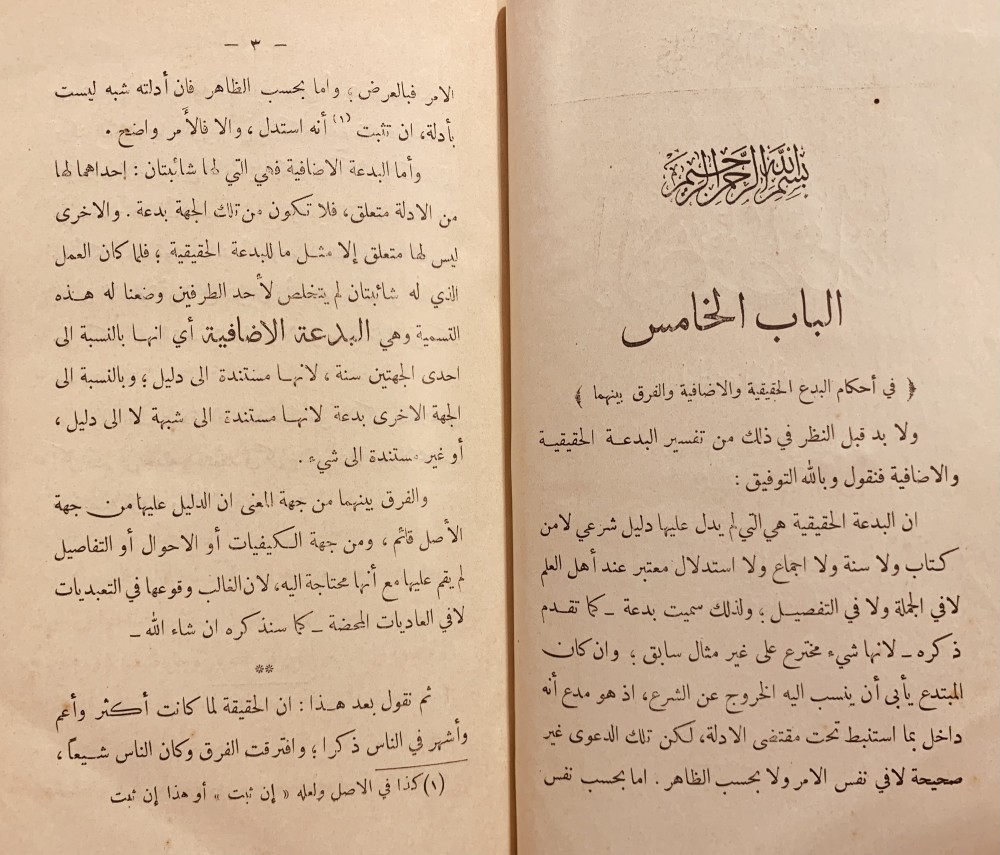 بسم الله الرحمن الرحيم
الباب الخامس
﴿ في أحكام البدع الحقيقية والاضافية والفرق بينهما ﴾
ولا بد قبل النظر في ذلك من تفسير البدعة الحقيقية
والاضافية فنقول وبالله التوفيق :
ان البدعة الحقيقية هي التي لم يدل عليها دليل شرعي لا من
كتاب ولا سنة ولا اجماع ولا استدلال معتبر عند أهل العلم
لا في الجملة ولا في التفصيل ؛ ولذلك سميت بدعة ـ كما تقدم
ذكره ـ لانها شيء مخترع على غير مثال سابق ؛ وان كان
المبتدع يأبى أن ينسب اليه الخروج عن الشرع، اذ هو مدع أنه
داخل بما استنبط تحت مقتضى الادلة، لكن تلك الدعوى غير
صحيحة لا في نفس الامر ولا بحسب الظاهر . اما بحسب نفس
— ٣ —
الامر فبالعرض ؛ واما بحسب الظاهر فان أدلته شبه ليست
بأدلة، ان تثبت (١) أنه استدل ، والا فالأمر واضح .
وأما البدعة الاضافية فهي التي لها شائبتان : إحداهما لها
من الادلة متعلق، فلا تكون من تلك الجهة بدعة . والاخرى
ليس لها متعلق إلا مثل ما للبدعة الحقيقية ؛ فلما كان العمل
الذي له شائبتان لم يتخلص لأحد الطرفين وضعنا له هذه
التسمية وهي البدعة الاضافية أي انها بالنسبة الى
احدى الجهتين سنة ، لانها مستندة الى دليل ؛ وبالنسبة الى
الجهة الاخرى بدعة لانها مستندة الى شبهة لا الى دليل ،
أو غير مستندة الى شيء .
والفرق بينهما من جهة المعنى ان الدليل عليها من جهة
الأصل قائم ، ومن جهة الكيفيات أو الاحوال أو التفاصيل
لم يقم عليها مع أنها محتاجة اليه، لان الغالب وقوعها في التعبديات
لا في العاديات المحضة ـ كما سنذكره ان شاء الله ـ
**
ثم نقول بعد هذا : ان الحقيقة لما كانت أكثر وأعم
وأشهر في الناس ذكرا ؛ وافترقت الفرق وكان الناس شيعاً،
(١) كذا في الاصل ولعله « إن ثبت » أو هذا إن ثبت